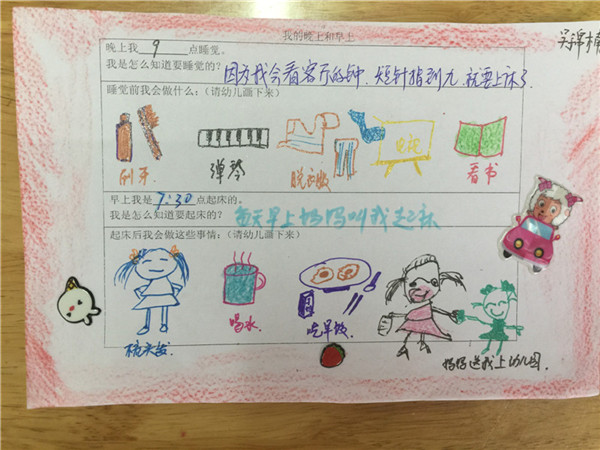 我的晚上和早上
晚上我 9 点睡觉。
我是怎么知道要睡觉的？因为我会看客厅的钟，短针指到九，就要上床了
睡觉前我会做什么：（请幼儿画下来）
电视
刷牙 弹琴 脱衣服 看书
早上我是 7:30 点起床的。
我是怎么知道要起床的？每天早上妈妈叫我起床
起床后我会做这些事情：（请幼儿画下来）
梳头发 喝水 吃早饭 妈妈送我上幼儿园.